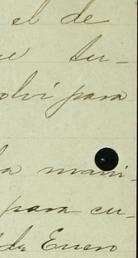 el de
e su-
olví para
la mani-
para cu-
de Enero